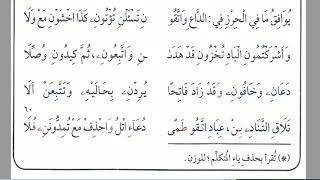 يُوَافِقُ مَا فِي الْحِرْزِ فِي: الدَّاعِ وَاتَّقُو نِ تَسْئَلْنِ تُؤْتُونِے كَذَا اخْشَوْنِ مَعْ وَلَا
وَأَشْرَكْتُمُونِ الْبَادِ تُخْزُونِ قَدْ هَدَىٰ نِ وَاتَّبِعُونِے ثُمَّ كِيدُونِ وُصِّلَا
دَعَانِے وَخَافُونِے وَقَدْ زَادَ فَاتِحًا يُرِدْنِے بِحَالَيْهِ وَتَتَّبِعَنْ أَلَا
٦٠
تَلَاقِ التَّنَادِے بِنْ، عِبَادِ اتَّقُو طَمَى دُعَاءِے اتْلُ وَاحْذِفْ مَعْ تُمِدُّونَنِے فُلَا
(*) تُقرأ بحذف ياء المتكلم؛ للوزن.